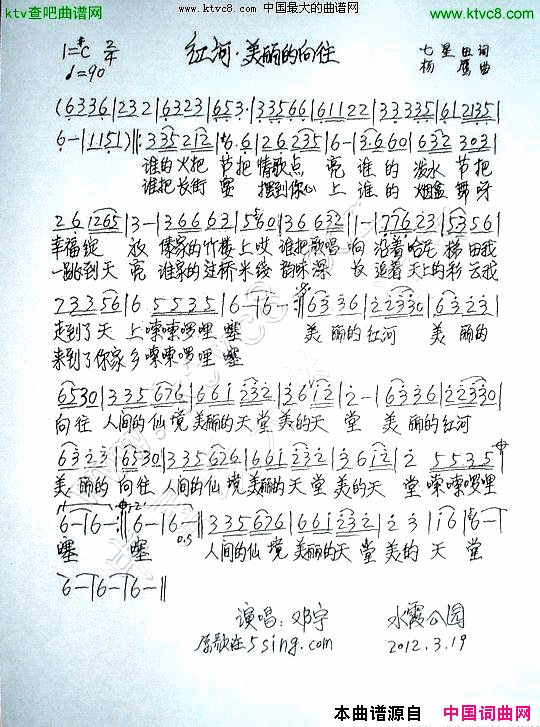 ktv查吧曲谱网 www.ktvc8.com 中国最大的曲谱网 www.ktvc8.com
1=#C 2/4 红河·美丽的向往 七星 词
♩=90 杨鹰 曲
(6336|232|6323|653·|33566|61122|33335|612135|
6-|1151)‖:335212|6·6|26235|6-|3·6660|632 303|
谁的火把 节把情歌点 亮谁的 泼水 节把
谁把长街 宴 摆到你心 上 谁的 烟盒 舞
26 1265|3-|366663|5 60|36632|1-|177623|53356|
幸福绽 放 傣家的竹楼上哎 谁把歌唱响 沿着哈尼 梯田我
跳到天 亮 谁家的过桥米线 韵味深 长 追着天上的彩 云我
723356|6 5535|6-|6-:‖63336|22330|6323|
走到了天 上嗦嗦啰哩 塞 美 丽的红河 美 丽的
来到了你家乡嗦嗦啰哩 塞
6530|335676|661232|3612|2-|6336|22330|
向往 人间的仙境 美丽的天 堂美的天 堂 美 丽的红河
6323|6530|335676|661232|3612|2 5535|
美 丽的 向往 人间的仙 境美丽的天 堂美的天 堂嗦嗦啰哩
6-|6-:‖6-|6-‖335676|661232|23|16|6-|
塞 塞 D.S 人间的仙境 美丽的天 堂美的 天 堂
6-|6-|6-‖
演唱:邓宇 水霞公园
原歌在5sing.com 2012.3.19
本曲谱源自 中国词曲网